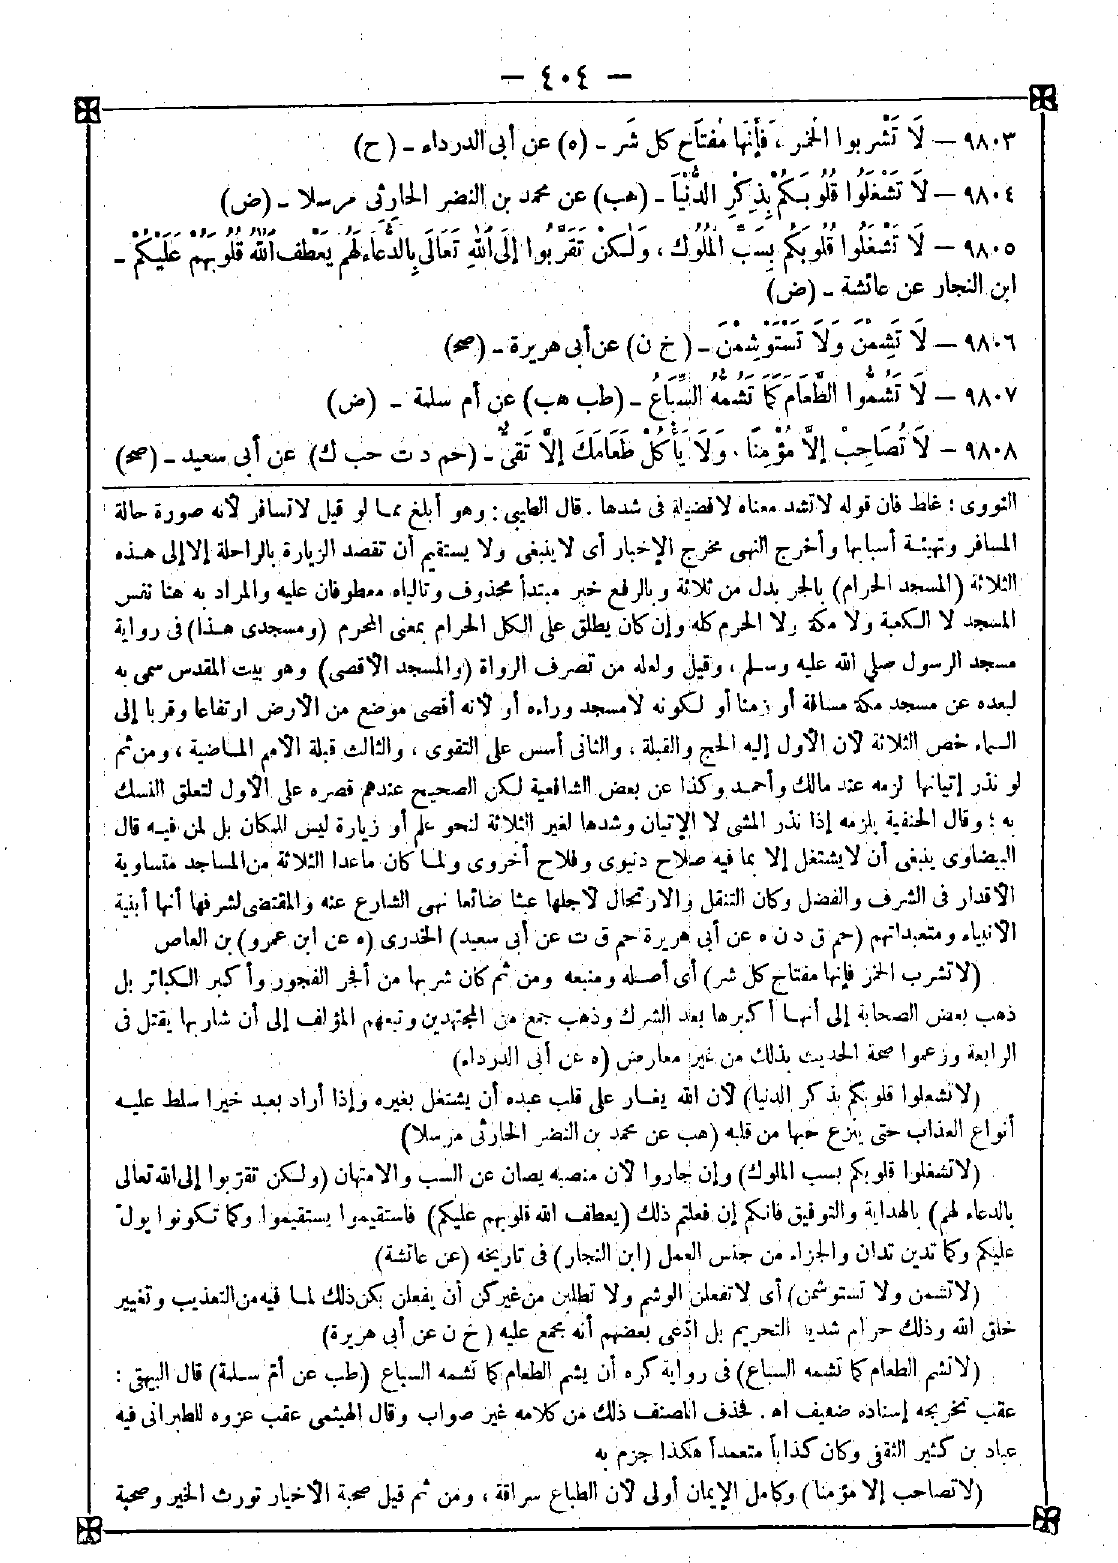 — ٤٠٤ —
٩٨٠٣ — لَا تَشْرَبوا الْخَمْرَ ، فَأِنَّهَا مُفتَاح كل شَر - (ه) عن أبى الدرداء - (ح)
٩٨٠٤ — لَا تَشْغَلُوا قُلُوبَكُمْ بِذِكْرِ الدُّنْيَا - (هب) عن محمد بن النضر الحارثى مرسلا - (ض)
٩٨٠٥ — لَا تَشْغَلُوا قُلُوبَكُم بِسَبِّ الْمُلُوك ، وَلَكِنْ تَقَرَّبُوا إِلَى اللهِ تَعَالَى بِالدُّعَاءِ لَهُم يَعْطِف اللهُ قُلُوبَهُمْ عَلَيْكُمْ -
ابن النجار عن عائشة - (ض)
٩٨٠٦ — لَا تَشِمْنَ وَلَا تَسْتَوْشِمْنَ - ( خ ن) عن أبى هريرة - (صح)
٩٨٠٧ — لَا تَشُمُّوا الطَّعَام كَمَا تَشُمُّهُ السِّبَاعُ - (طب هب) عن أم سلمة - (ض)
٩٨٠٨ - لَا تُصَاحِبْ إِلَّا مُؤْمِنًا ، وَلَا يَأْكُلْ طَعَامَكَ إِلَّا تَقِىٌّ - (حم د ت حب ك) عن أبى سعيد - (صح)
النووى : غلط فان قوله لاتشد معناه لافضيلة فى شدها . قال الطيبى : وهو أبلغ مما لو قيل لاتسافر لأنه صورة حالة
المسافر وتهيئة أسبابها وأخرج النهى مخرج الإخبار أى لاينبغى ولا يستقيم أن تقصد الزيارة بالرحلة إلا إلى هذه
الثلاثة (المسجد الحرام) بالجر بدل من ثلاثة وبالرفع خبر مبتدأ محذوف وتالياه معطوفان عليه والمراد به هنا نفس
المسجد لا الكعبة ولا مكة ولا الحرم كله وإن كان يطلق على الكل الحرام بمعنى المحرم (ومسجدى هذا) فى رواية
مسجد الرسول صلى الله عليه وسلم ، وقيل ولعله من تصرف الرواة (والمسجد الأقصى) وهو بيت المقدس سمى به
لبعده عن مسجد مكة مسافة أو زمنا أو لكونه لامسجد وراءه أو لأنه أقصى موضع من الأرض ارتفاعا وقربا إلى
السماء خص الثلاثة لأن الأول إليه الحج والقبلة ، والثانى أسس على التقوى ، والثالث قبلة الأمم الماضية ، ومن ثم
لو نذر إتيانها لزمه عند مالك وأحمد وكذا عن بعض الشافعية لكن الصحيح عندهم قصره على الأول لتعلق النسك
به ؛ وقال الحنفية يلزمه إذا نذر المشى لا الإتيان وشدها لغير الثلاثة لنحو علم أو زيارة ليس للمكان بل لمن فيه قال
البيضاوى ينبغى أن لايشتغل إلا بما فيه صلاح دنيوى وفلاح أخروى ولما كان ماعدا الثلاثة من المساجد متساوية
الأقدار فى الشرف والفضل وكان التنقل والارتحال لأجلها عبثا ضائعا نهى الشارع عنه والمقتضى لشرفها أنها أبنية
الأنبياء ومتعبداتهم (حم ق د ن ه عن أبى هريرة حم ق ت عن أبى سعيد) الخدرى (ه عن ابن عمرو) بن العاص
(لاتشرب الخمر فإنها مفتاح كل شر) أى أصله ومنبعه ومن ثم كان شربها من أفجر الفجور وأكبر الكبائر بل
ذهب بعض الصحابة إلى أنها أكبرها بعد الشرك وذهب جمع من المجتهدين وتبعهم المؤلف إلى أن شاربها يقتل فى
الرابعة وزعموا صحة الحديث بذلك من غير معارض (ه عن أبى الدرداء)
(لاتشغلوا قلوبكم بذكر الدنيا) لأن الله يغار على قلب عبده أن يشتغل بغيره وإذا أراد بعبد خيرا سلط عليه
أنواع العذاب حتى ينزع حبها من قلبه (هب عن محمد بن النضر الحارثى مرسلا)
(لاتشغلوا قلوبكم بسب الملوك) وإن جاروا لأن منصبه يصان عن السب والامتهان (ولكن تقربوا إلى الله تعالى
بالدعاء لهم) بالهداية والتوفيق فانكم إن فعلتم ذلك (يعطف الله قلوبهم عليكم) فاستقيموا يستقيموا وكما تكونوا يولّ
عليكم وكما تدين تدان والجزاء من جنس العمل (ابن النجار) فى تاريخه (عن عائشة)
(لاتشمن ولا تستوشمن) أى لاتفعلن الوشم ولا تطلبن من غيركن أن يفعلن بكن ذلك لما فيه من التعذيب وتغيير
خلق الله وذلك حرام شديد التحريم بل ادّعى بعضهم أنه مجمع عليه (خ ن عن أبى هريرة)
(لاتشم الطعام كما تشمه السباع) فى رواية كره أن يشم الطعام كما تشمه السباع (طب عن أم سلمة) قال البيهقى :
عقب تخريجه إسناده ضعيف اه . فحذف المصنف ذلك من كلامه غير صواب وقال الهيثمى عقب عزوه للطبرانى فيه
عباد بن كثير الثقفى وكان كذاباً متعمداً هكذا جزم به
(لاتصاحب إلا مؤمنا) وكامل الإيمان أولى لأن الطباع سراقة ، ومن ثم قيل صحبة الأخيار تورث الخير وصحبة